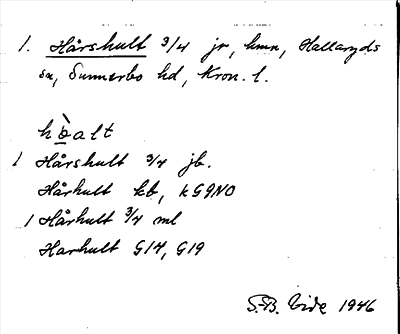 1. Hårshult 3/4 jr, hmn, Hallaryds
sn, Sunnerbo hd, Kron. l.
hò̲alt
1 Hårshult 3/4 jb.
Hårhult kb, kG9NO
1 Hårhult 3/4 ml
Harhult G14, G19
S.-B. Vide 1946